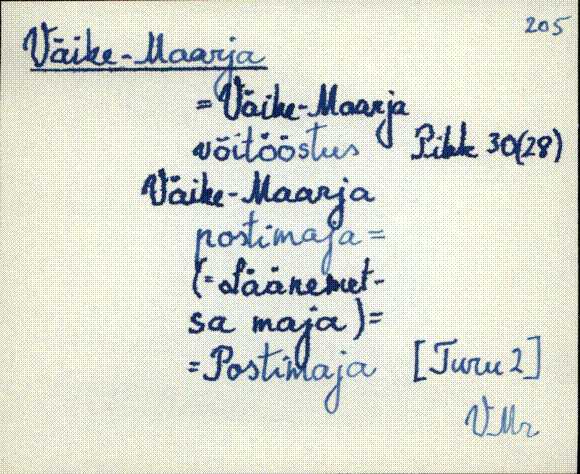 205
Väike-Maarja
= Väike-Maarja
võitööstus Pikk 30(28)
Väike-Maarja
postimaja =
(= Läänemet-
sa maja) =
= Postimaja [Turu 2]
VMr